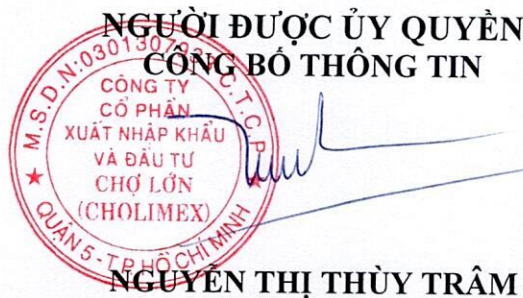 NGƯỜI ĐƯỢC ỦY QUYỀN
CÔNG BỐ THÔNG TIN
CÔNG TY
CỔ PHẦN
XUẤT NHẬP KHẨU
VÀ ĐẦU TƯ
CHỢ LỚN
(CHOLIMEX)
QUẬN 5 - TP HỒ CHÍ MINH
NGUYỄN THỊ THÙY TRÂM